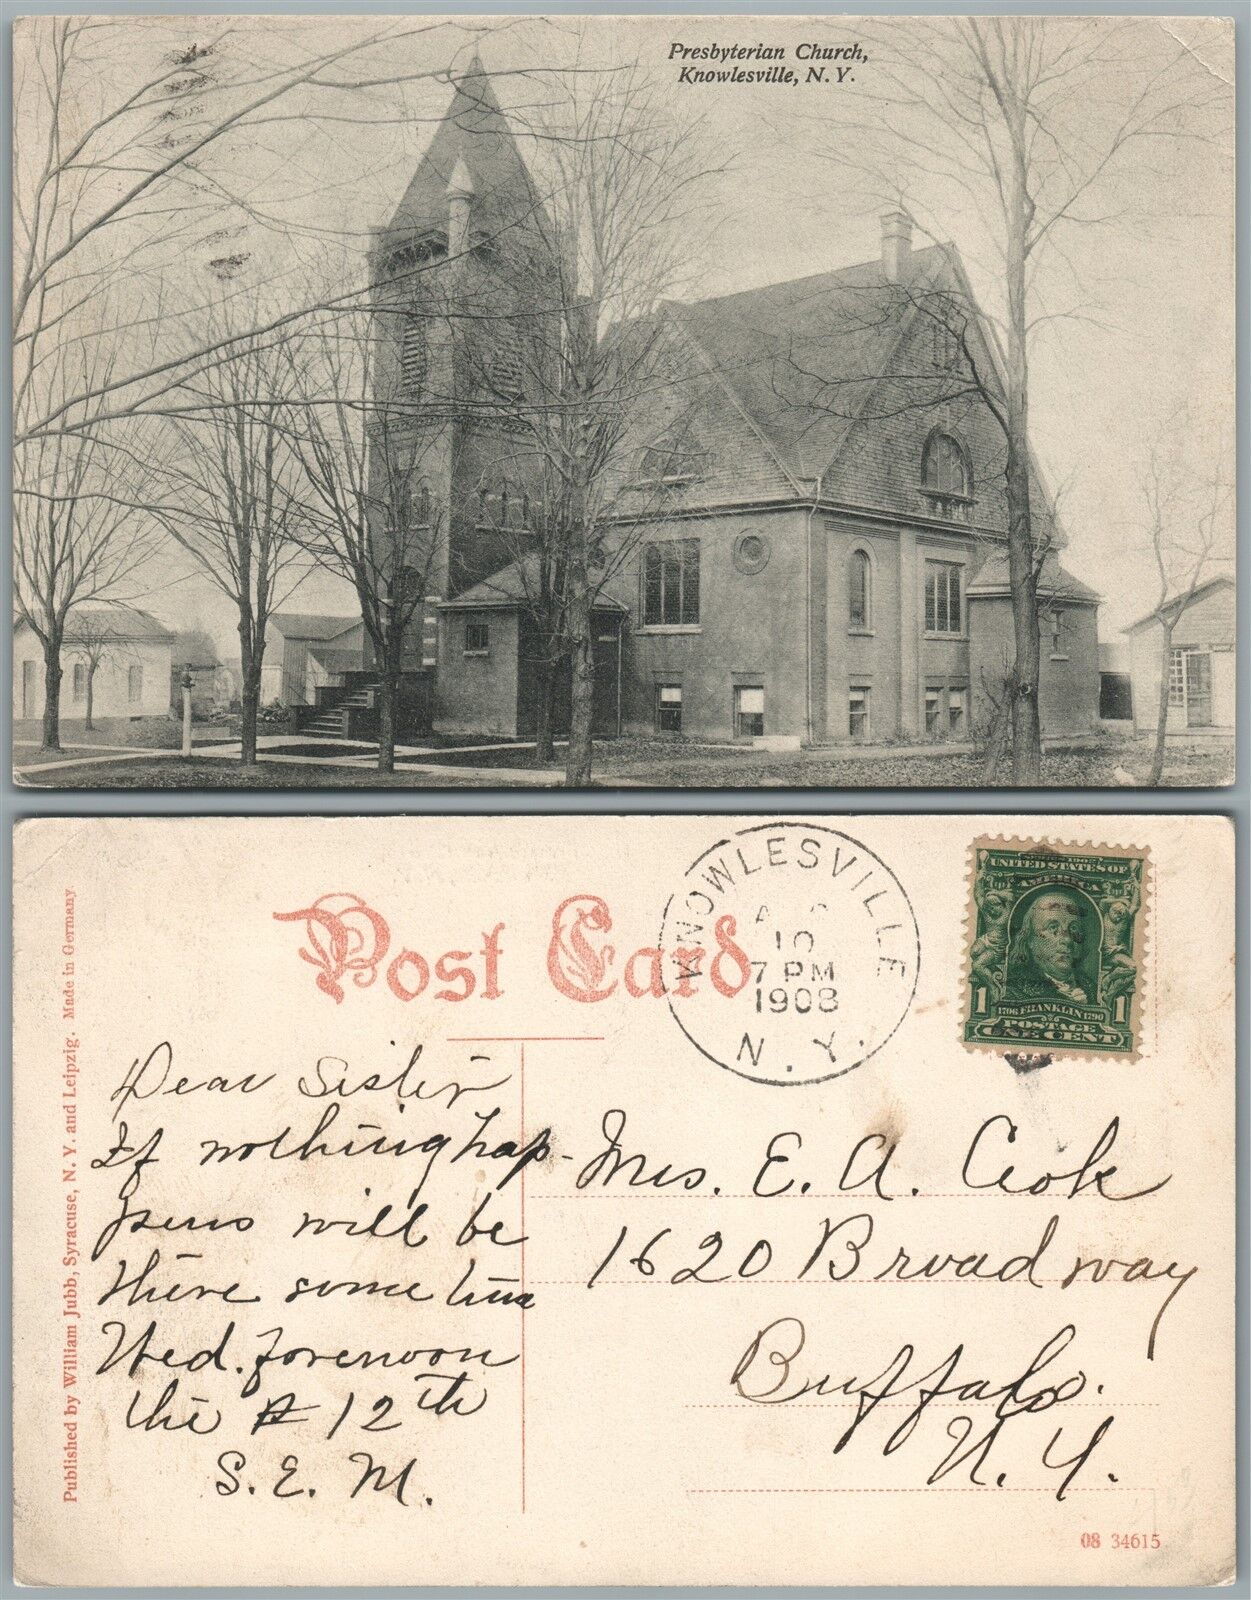 Presbyterian Church,
Knowlesville, N. Y.
Published by William Jubb, Syracuse, N. Y. and Leipzig. Made in Germany
Post Card
KNOWLESVILLE
10
7 PM
1908
N. Y.
SERIES 1902
UNITED STATES OF
AMERICA
1 1
1706 FRANKLIN 1790
POSTAGE
ONE CENT
Dear Sister
If nothing hap-
pens will be
there some time
Wed. forenoon
the 12th
S. E. M.
Mrs. E. A. Cook
1620 Broadway
Buffalo.
N. Y.
08 34615